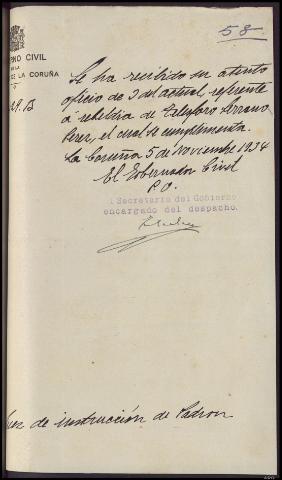 58
RNO CIVIL
DE LA
DE LA CORUÑA
29.B
Se ha recibido su atento
oficio de 3 del actual referente
á rebeldia de Telesforo Arranz
Perez, el cual se cumplimenta.
La Coruña 5 de Noviembre 1934
El Gobernador Civil
P.O.
l Secretario del Gobierno
encargado del despacho.
uez de instrucción de Padron